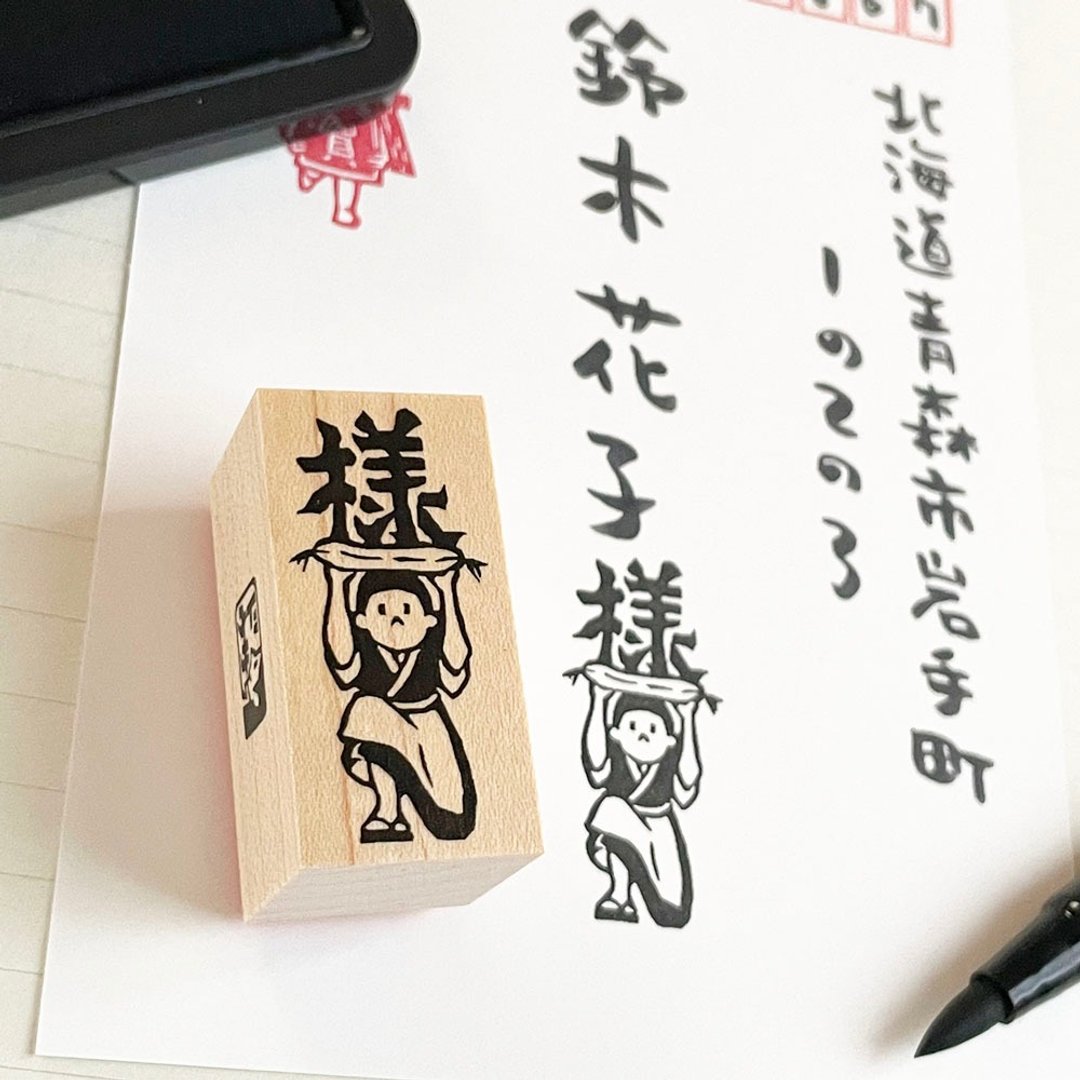 北海道青森市岩手町
1の2の3
鈴木花子様
様
賀